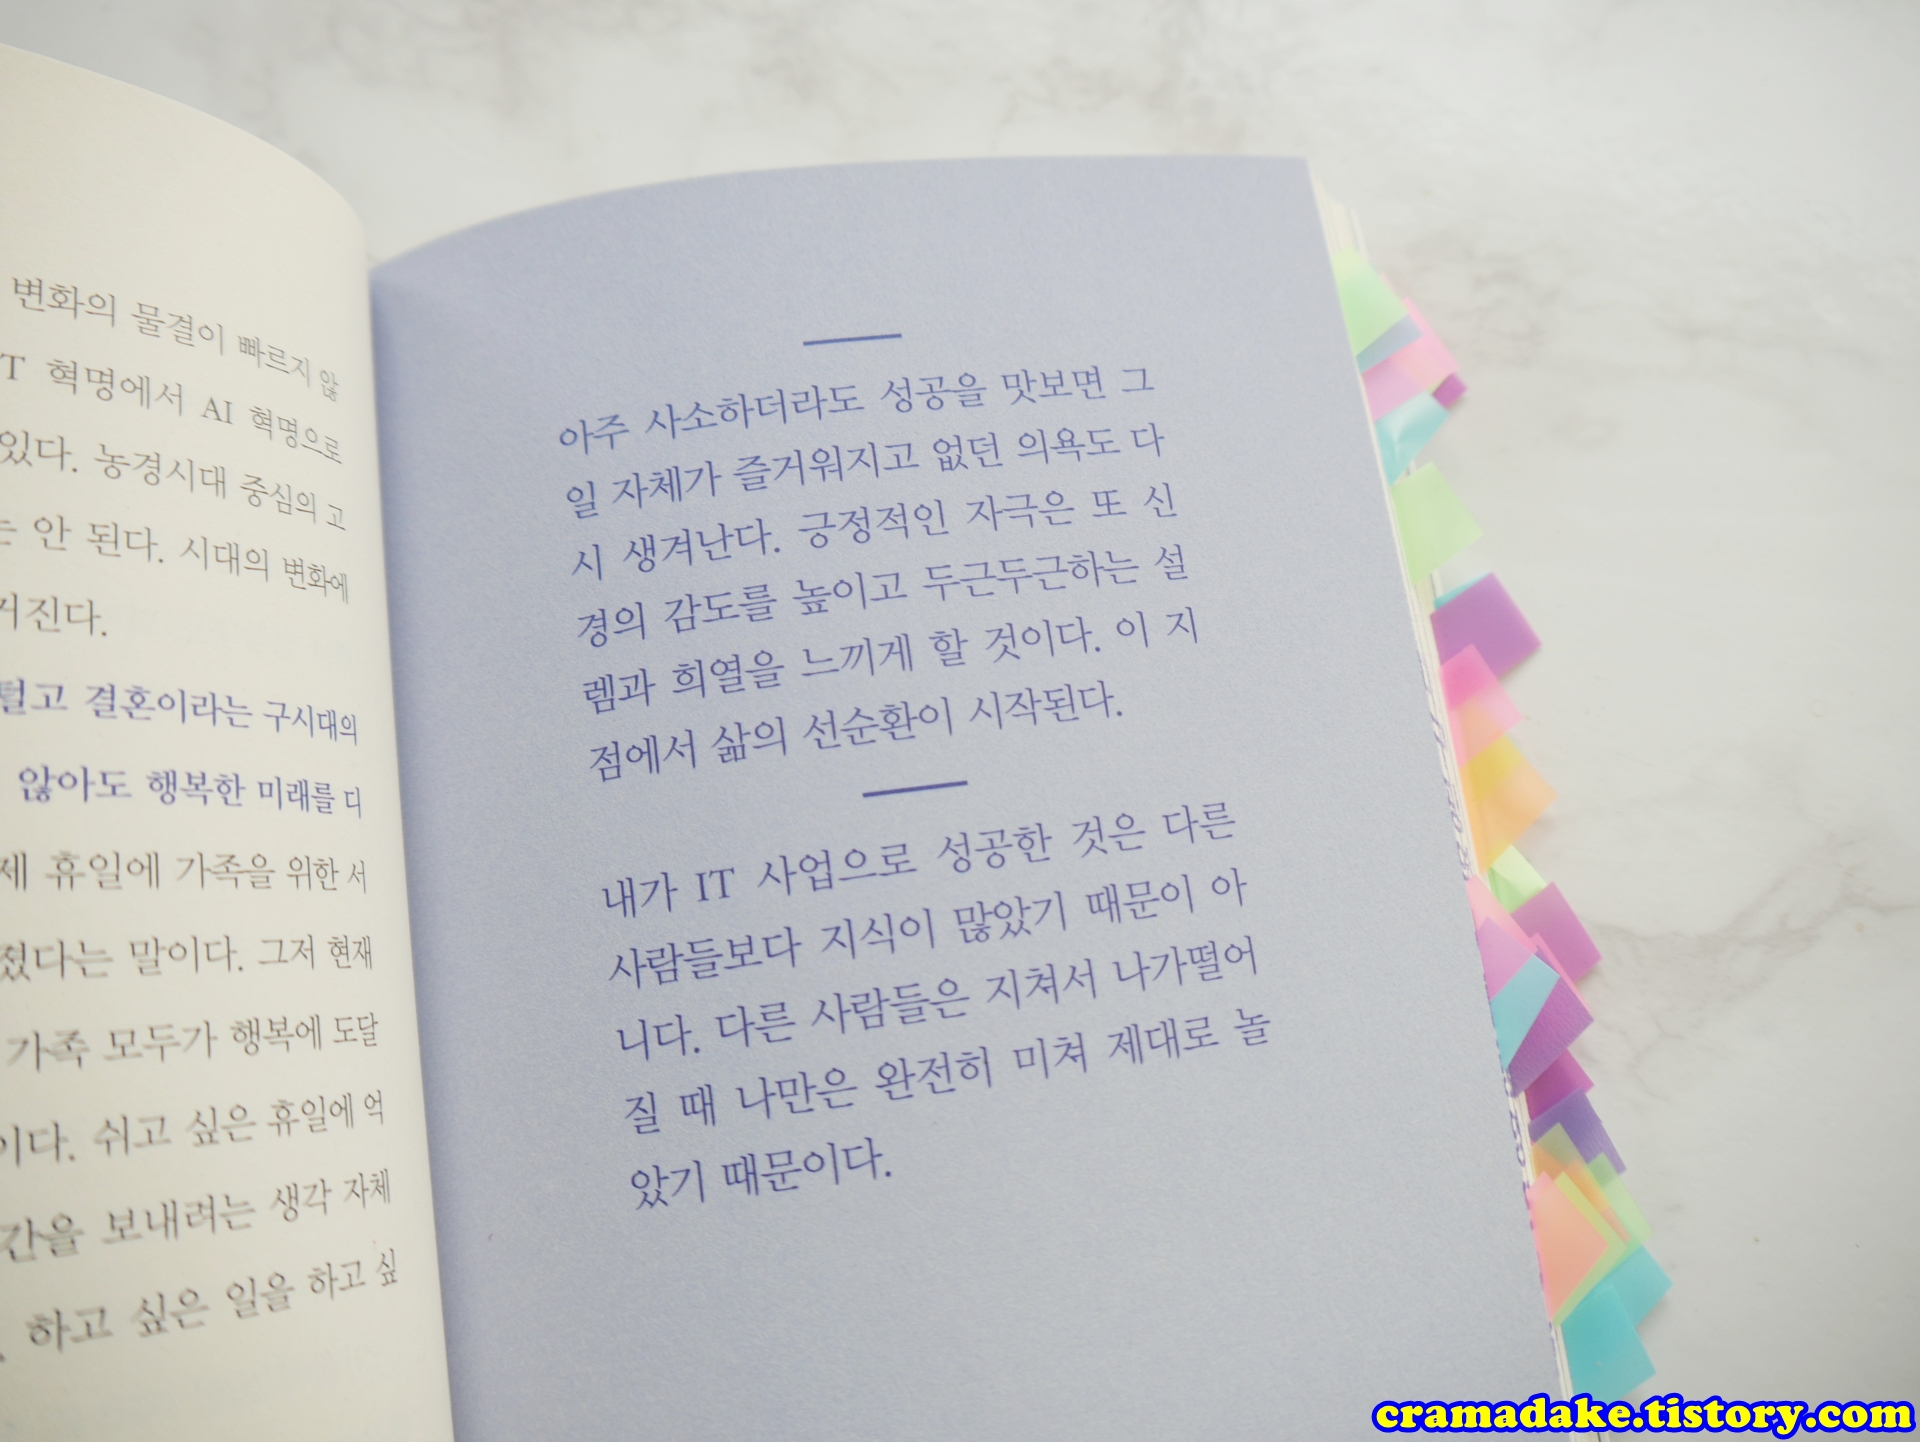 변화의 물결이 빠르지 않
T 혁명에서 AI 혁명으로
있다. 농경시대 중심의 고
는 안 된다. 시대의 변화에
거진다.
털고 결혼이라는 구시대의
않아도 행복한 미래를 디
제 휴일에 가족을 위한 서
졌다는 말이다. 그저 현재
가족 모두가 행복에 도달
이다. 쉬고 싶은 휴일에 억
간을 보내려는 생각 자체
하고 싶은 일을 하고 싶
아주 사소하더라도 성공을 맛보면 그
일 자체가 즐거워지고 없던 의욕도 다
시 생겨난다. 긍정적인 자극은 또 신
경의 감도를 높이고 두근두근하는 설
렘과 희열을 느끼게 할 것이다. 이 지
점에서 삶의 선순환이 시작된다.
내가 IT 사업으로 성공한 것은 다른
사람들보다 지식이 많았기 때문이 아
니다. 다른 사람들은 지쳐서 나가떨어
질 때 나만은 완전히 미쳐 제대로 놀
았기 때문이다.
cramadake.tistory.com